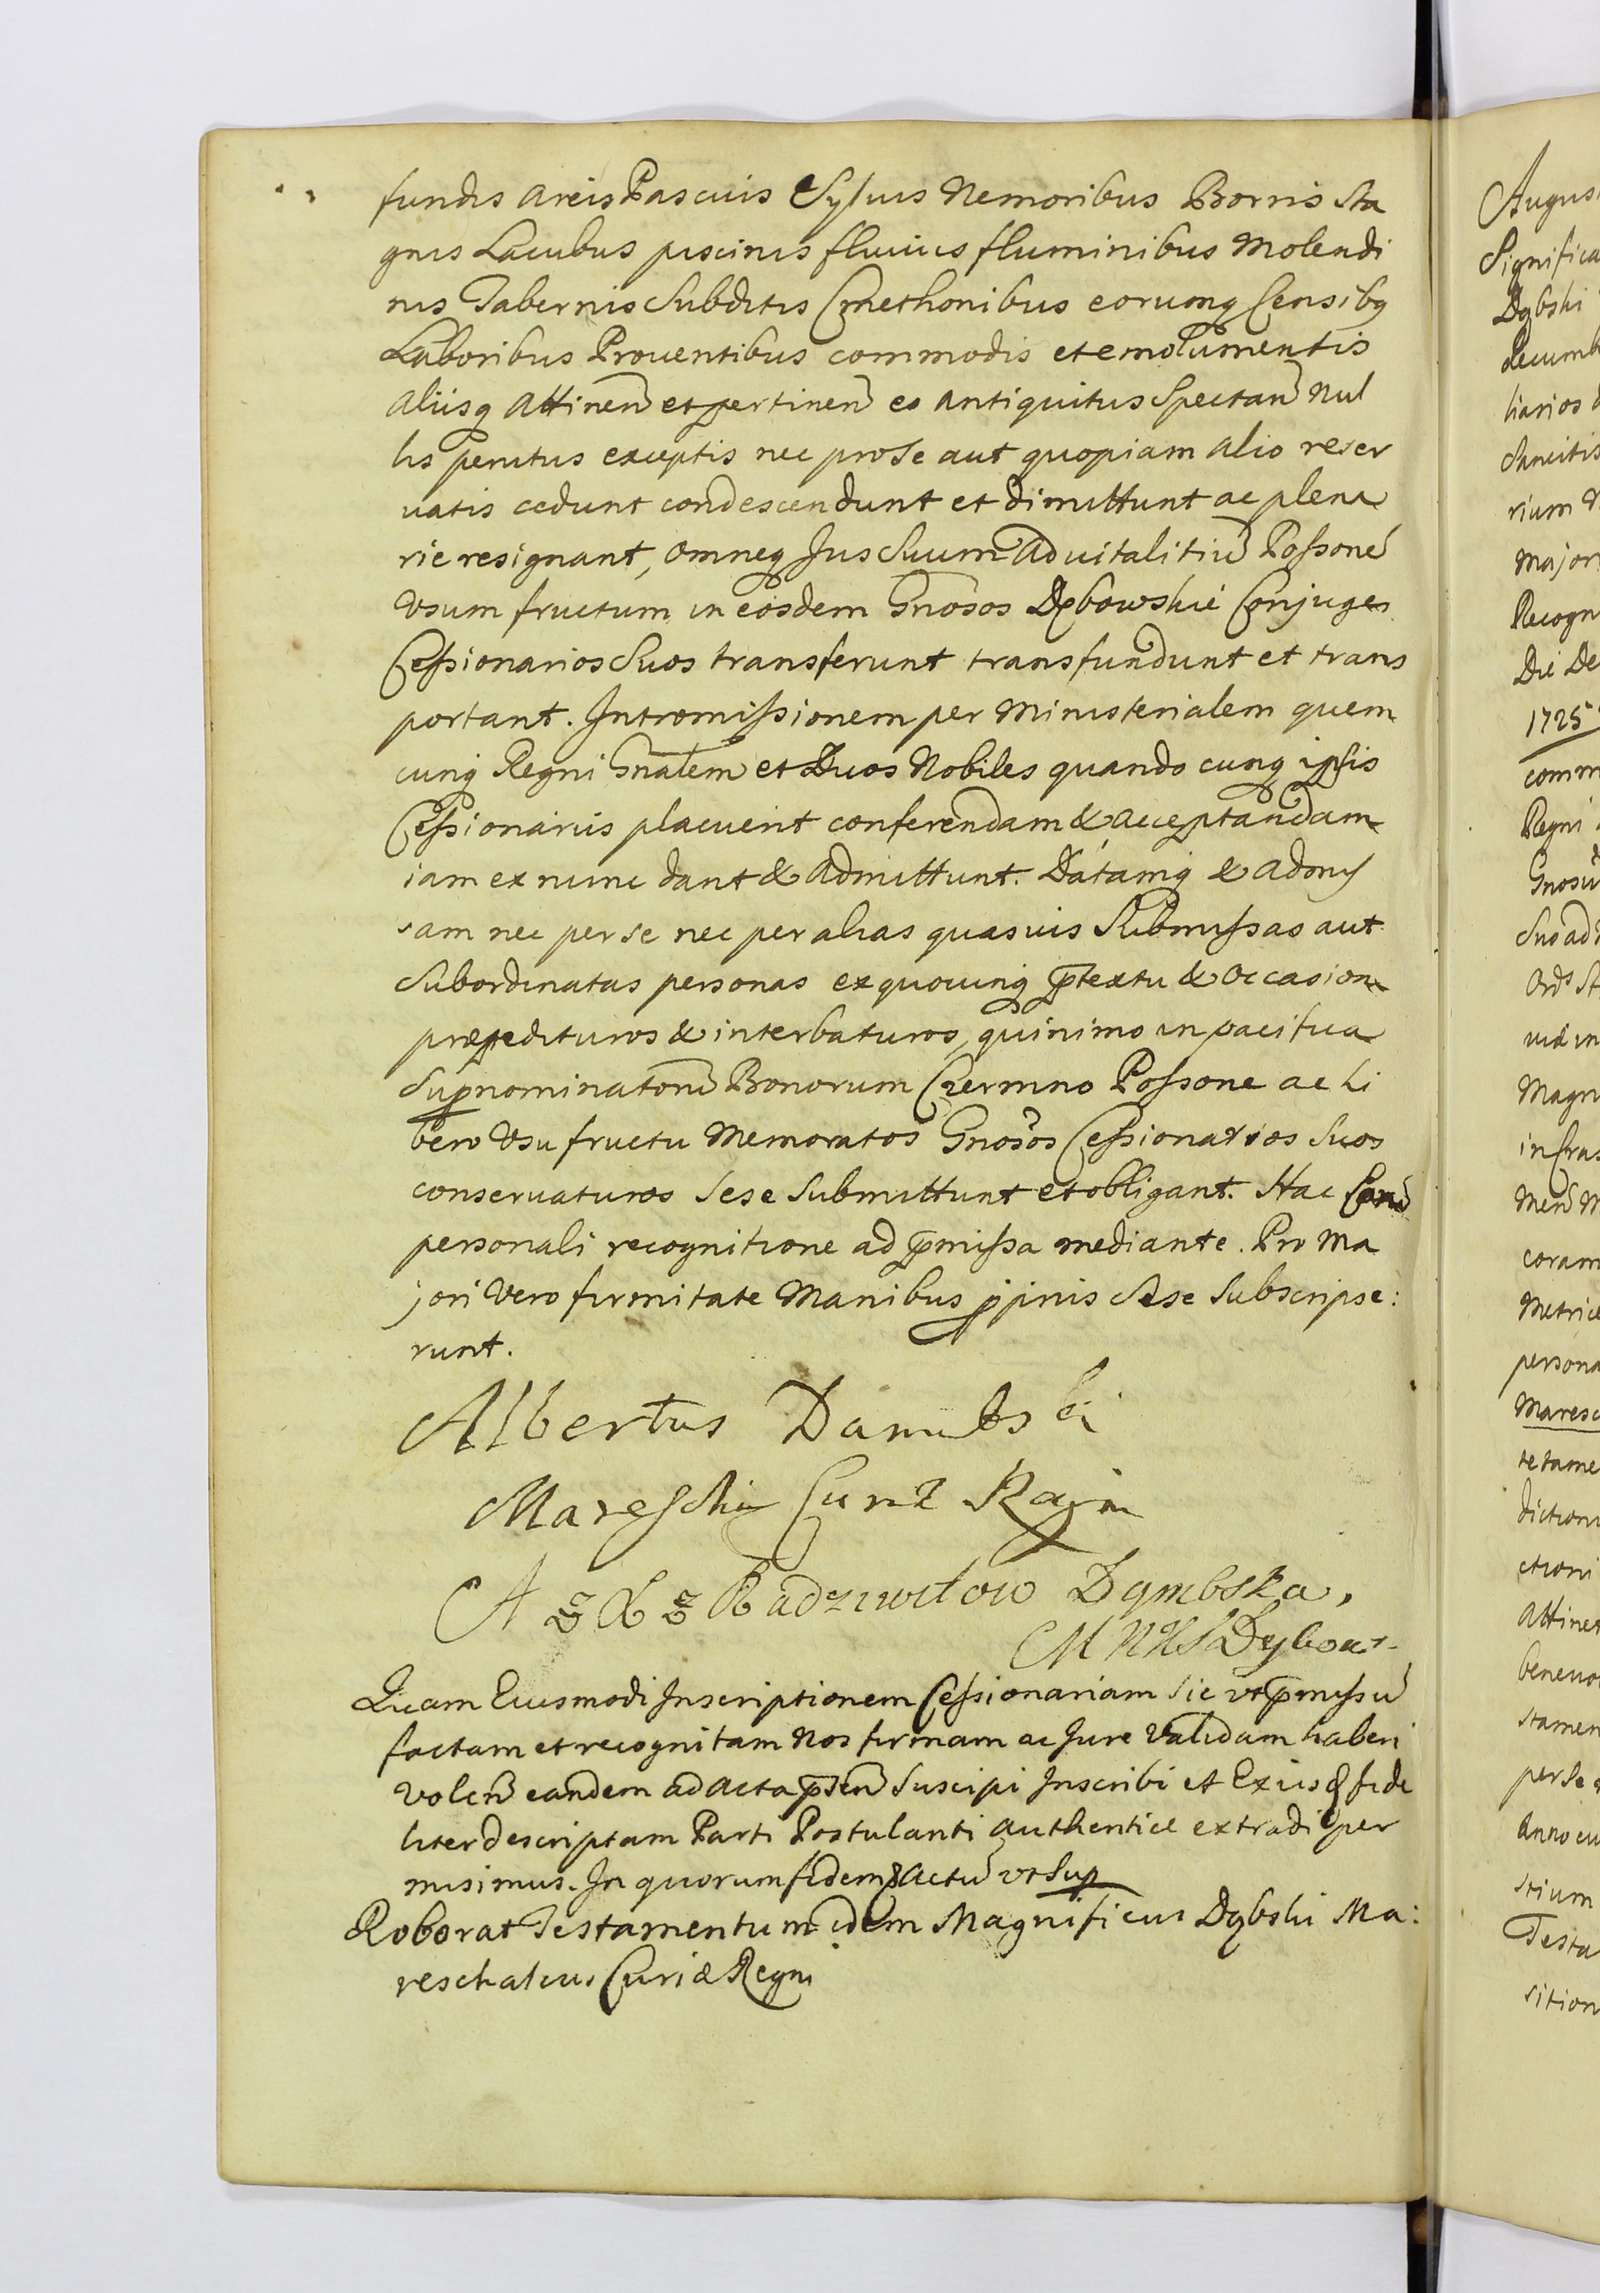 fundis areis Pascuis Syluis Nemoribus Borris sta
gnis Lacubus piscinis fluuiis fluminibus Molendi
nis Tabernis Subditis Cmethonibus eorumq Censibq
Laboribus Prouentibus commodis et emolumentis
aliisq attinen et pertinen eo antiquitus Spectan Nul
lis penitus exceptis nec pro se aut quopiam alio reser
uatis cedunt condescendunt et dimittunt ac plena
rie resignant, omneq Jus Suum aduitalitiu Possone
Vsum fructum in eosdem Gnosos Dębowskie Conjuges
Cessionarios Suos transferunt transfundunt et trans
portant. Intromissionem per Ministerialem quem
cunq Regni Gnalem et Duos Nobiles quando cunq ipsis
Cessionariis placuerit conferendam & acceptandam
iam ex nunc dant & admittunt. Datamq & adomis
sam nec per se nec per alias quasuis Submissas aut
Subordinatas personas ex quocunq ptextu & occasione
præpedituros & interbaturos, quinimo in pacifica
Supnominatoru Bonorum Czermno Possone ac li
bero Vsu fructu Memoratos Gnosos Cessionarios Suos
conseruaturos sese Submittunt et obligant. Hac
personali recognitione ad pmissa mediante. Pro Ma
jori Vero firmitate Manibus ppriis Sese Subscripse:
runt.
Albertus Dambski
Cur
A z X z Radziwiłow Dąmbska,
Quam Eiusmodi Inscriptionem Cessionariam sic vt pmissu
factam et recognitam Nos firmam ac Jure Validam haberi
volen eandem ad acta psen Suscipi Inscribi et Ex iis fide
liter descriptam Parti Postulanti authentice extradi per
misimus. In quorum fidem & actu vt Sup
Roborat Testamentum idem Magnificus Dąbski Ma:
reschalcus Curiæ Regni
Significa
Dąbski
1725
comm
Regni
Magn
coram
Metrice
persona